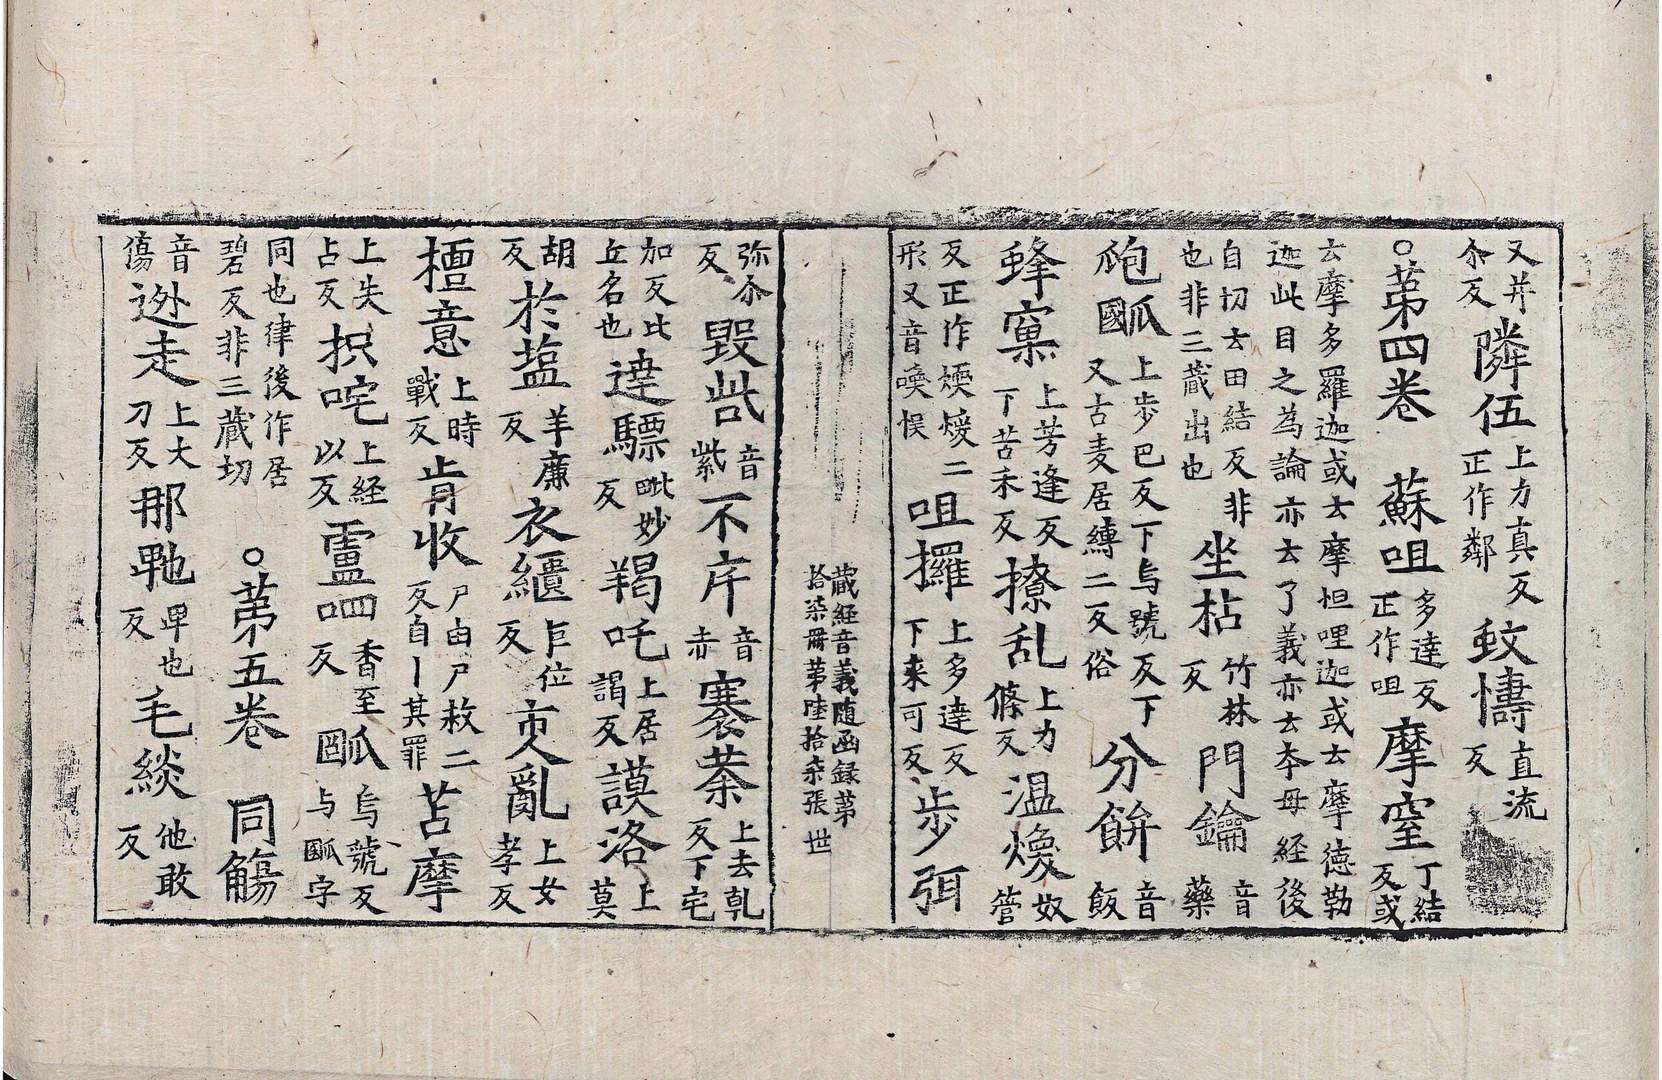 又并尒反隣伍上力真反正作鄰蚊幬直流反
○苐四卷　蘇咀多達反正作呾摩窒丁結反或
云摩多羅迦或云摩怛哩迦或云摩德勒迦此目之為論亦云了義亦云夲母経後
自切云田結反非也非三藏出也坐枯竹林反門鑰音藥
𤬛上步巴反下烏號反下又古麦居縛二反俗分餅音飯
蜂窠上芳逢反下苦禾反撩乱上力條反温煗奴管
反正作煗煖二形又音喚悮咀攞上多達反下来可反步弭
藏経音義随函録苐拾柒冊苐陸拾柒張　世
弥尒反毀呰音紫不序音赤褰荼上去乹反下宅
加反比丘名也達驃毗妙反羯吒上居謁反謨洛上莫
胡反於塩羊廉反衣繣巨位反亂上女孝反
檀意上時戰反肯收尸由尸救二反自丨其罪苫摩
上失占反抧咤上経以反盧呬香至反𤬛烏號反与𤬛字
同也律後作居碧反非三藏切○苐五卷　同觴
音傷迯走上大刀反那鞞毗也反毛緂他敢反